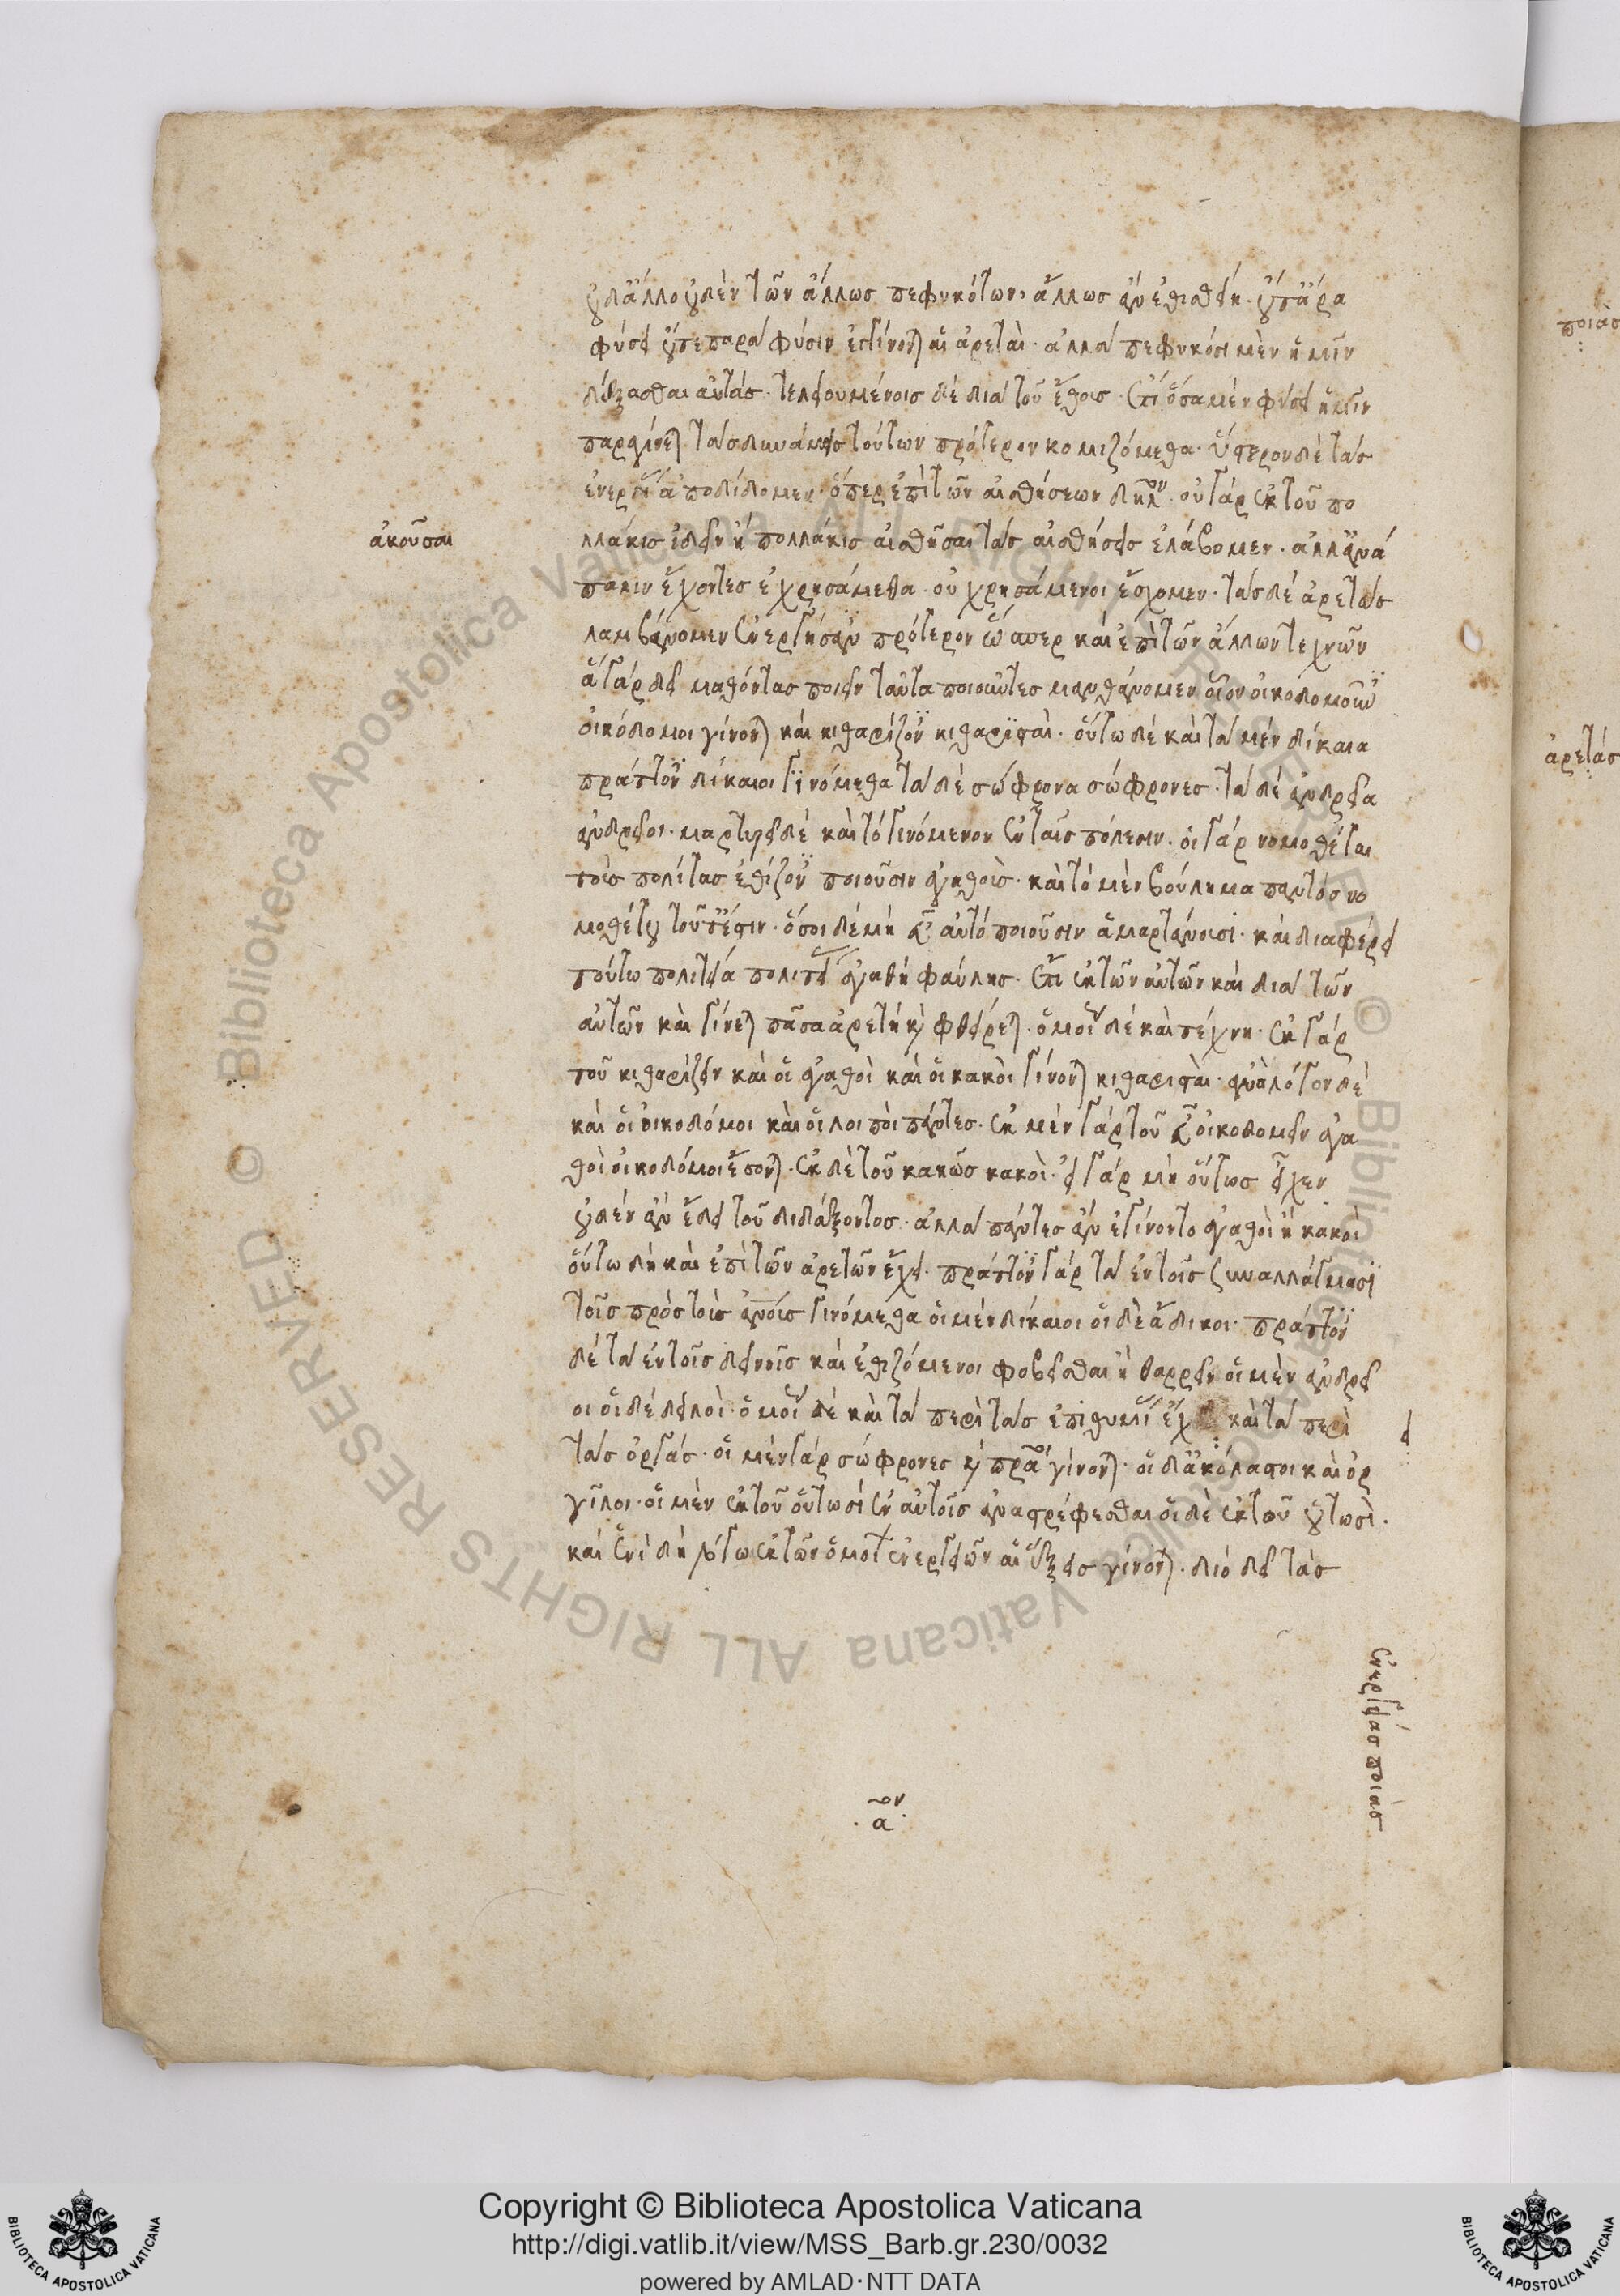 οὐδ' ἄλλο οὐδὲν τῶν ἄλλως πεφυκότων, ἄλλως ἂν ἐθισθείη. οὔτ' ἄρα
φύσει οὔτε παρὰ φύσιν ἐγγίνονται αἱ ἀρεταὶ. ἀλλὰ πεφυκόσι μὲν ἡμῖν
δέξασθαι αὐτάς. τελειουμένοις δὲ διὰ τοῦ ἔθους. ἔτι ὅσα μὲν φύσει ἡμῖν
παραγίνεται τὰς δυνάμεις τούτων πρότερον κομιζόμεθα. ὕστερον δὲ τὰς
ἐνεργείας ἀποδίδομεν. ὅπερ ἐπὶ τῶν αἰσθήσεων δῆλον. οὐ γὰρ ἐκ τοῦ πο
λλάκις ἰδεῖν ἢ πολλάκις αἰσθῆσαι τὰς αἰσθήσεις ἐλάβομεν. ἀλλ' ἀνά
ἀκοῦσαι
παλιν ἔχοντες ἐχρησάμεθα. οὐ χρησάμενοι ἔσχομεν. τὰς δὲ ἀρετὰς
λαμβάνομεν ἐνεργήσαν πρότερον ὥσπερ καὶ ἐπὶ τῶν ἄλλων τεχνῶν
ἃ γὰρ δεῖ μαθόντας ποιεῖν ταῦτα ποιοῦντες μανθάνομεν οἷον οἰκοδομοῦντες
οἰκόδομοι γίνονται καὶ κιθαρίζοντες κιθαρισταὶ. οὕτω δὲ καὶ τὰ μὲν δίκαια
πράττοντες δίκαιοι γινόμεθα τὰ δὲ σώφρονα σώφρονες. τὰ δὲ ἀνδρεῖα
ἀνδρεῖοι. μαρτυρεῖ δὲ καὶ τὸ γινόμενον ἐν ταῖς πόλεσιν. οἱ γὰρ νομοθέται
τοὺς πολίτας ἐθίζοντες ποιοῦσιν ἀγαθοὺς. καὶ τὸ μὲν βούλημα παντὸς νο
μοθέτου τοῦτ' ἔστιν. ὅσοι δὲ μὴ εὖ αὐτὸ ποιοῦσιν ἁμαρτάνουσι. καὶ διαφέρει
τούτω πολιτεία πολιτείας ἀγαθὴ φαύλης. ἔτι ἐκ τῶν αὐτῶν καὶ διὰ τῶν
αὐτῶν καὶ γίνεται πᾶσα ἀρετὴ καὶ φθείρεται. ὁμοίως δὲ καὶ τέχνη. ἐκ γὰρ
τοῦ κιθαρίζειν καὶ οἱ ἀγαθοὶ καὶ οἱ κακοὶ γίνονται κιθαρισταὶ. ἀνάλογον δὲ
καὶ οἱ οἰκοδόμοι καὶ οἱ λοιποὶ πάντες. ἐκ μὲν γὰρ τοῦ εὖ οἰκοδομεῖν ἀγα
θοὶ οἰκοδόμοι ἔσονται. ἐκ δὲ τοῦ κακῶς κακοὶ. εἰ γὰρ μὴ οὕτως εἶχεν
οὐδὲν ἂν ἔδει τοῦ διδάξοντος. ἀλλὰ πάντες ἂν ἐγίνοντο ἀγαθοὶ ἢ κακοὶ
οὕτω δὴ καὶ ἐπὶ τῶν ἀρετῶν ἔχει. πράττοντες γὰρ τὰ ἐν τοῖς συναλλάγμασι
τοῖς πρὸς τοὺς ἀνους γινόμεθα οἱ μὲν δίκαιοι οἱ δὲ ἄδικοι. πράττοντες
δὲ τὰ ἐν τοῖς δεινοῖς καὶ ἐθιζόμενοι φοβεῖσθαι ἢ θαρρεῖν οἱ μὲν ἀνδρεῖ
οι οἱ δὲ δειλοὶ. ὁμοίως δὲ καὶ τὰ περὶ τὰς ἐπιθυμίας ἔχει καὶ τὰ περὶ
ει
τὰς ὀργάς. οἱ μὲν γὰρ σώφρονες καὶ πρᾶοι γίνονται. οἱ δ' ἀκόλαστοι καὶ ὀρ
γῖλοι. οἱ μὲν ἐκ τοῦ οὑτωσὶ ἐν αὐτοῖς ἀναστρέφεσθαι οἱ δὲ ἐκ τοῦ οὑτωσὶ.
καὶ ἑνὶ δὴ λόγω ἐκ τῶν ὁμοίων ἐνεργειῶν αἱ ἕξεις γίνονται. διὸ δεῖ τὰς
ἐνεργείας ποιὰς
α ον
ποιὰς
ἀρετάς
Copyright © Biblioteca Apostolica Vaticana
http://digi.vatlib.it/view/MSS_Barb.gr.230/0032
powered by AMLAD·NTT DATA
BIBLIOTECA APOSTOLICA VATICANA
BIBLIOTECA APOSTOLICA VATICANA
Biblioteca Apostolica Vaticana ALL RIGHTS RESERVED ©
Biblioteca Apostolica Vaticana ALL RIGHTS RESERVED ©